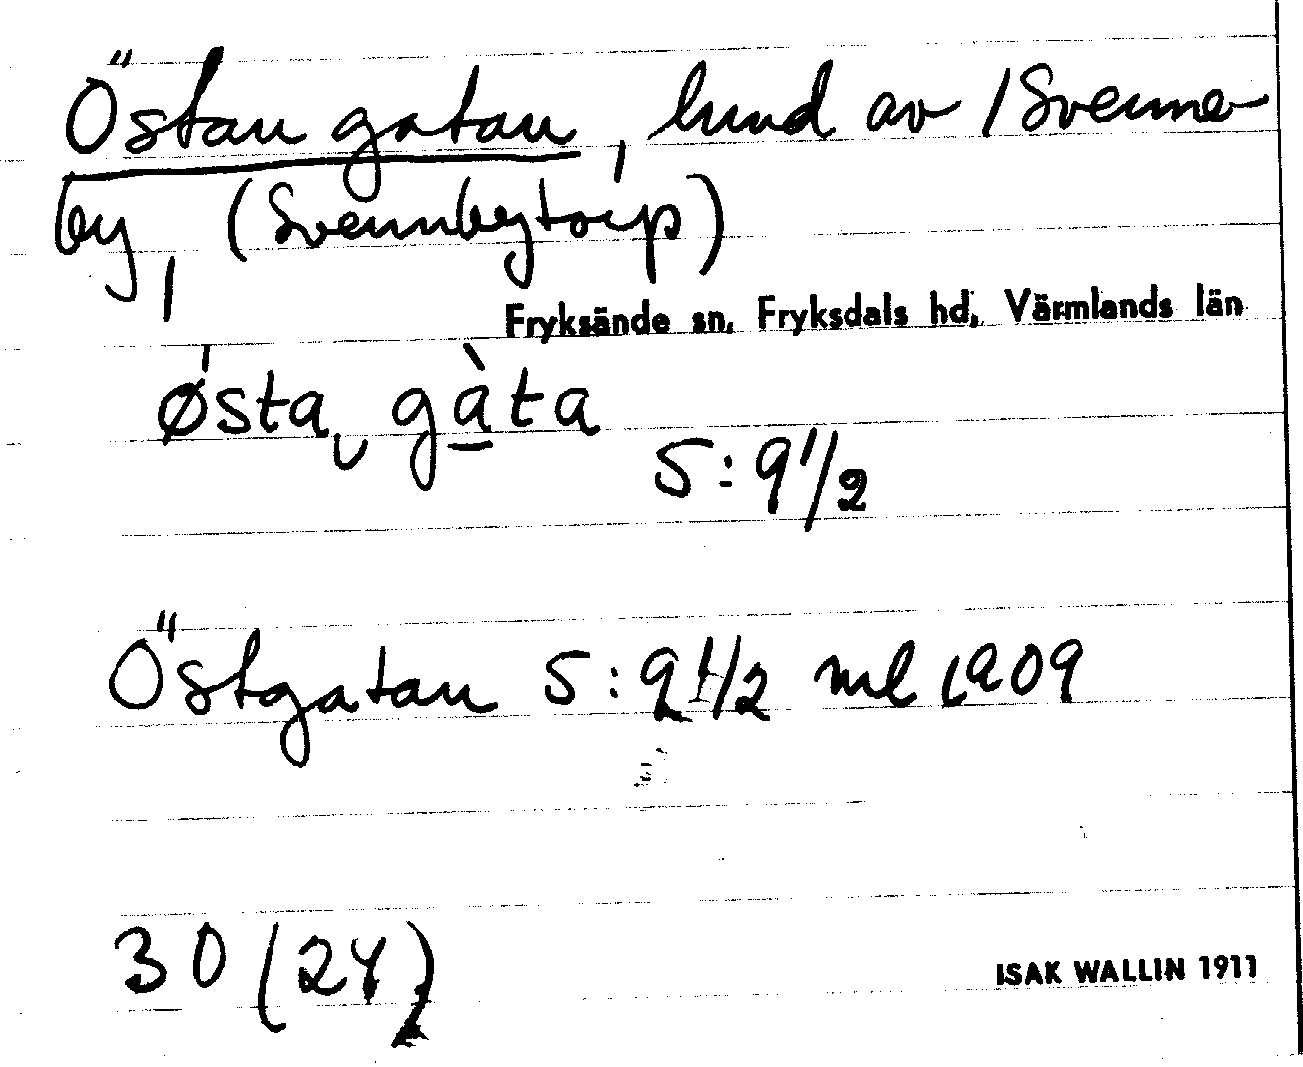 Östan gatan, hmd av 1 Svenne-
by, (Svennbytorp)
Fryksände sn, Fryksdals hd, Värmlands län
ǿsta˯ gàta
5:9 1/2
Östgatan 5:9 1/2 ml 1909
30 (24)
ISAK WALLIN 1911